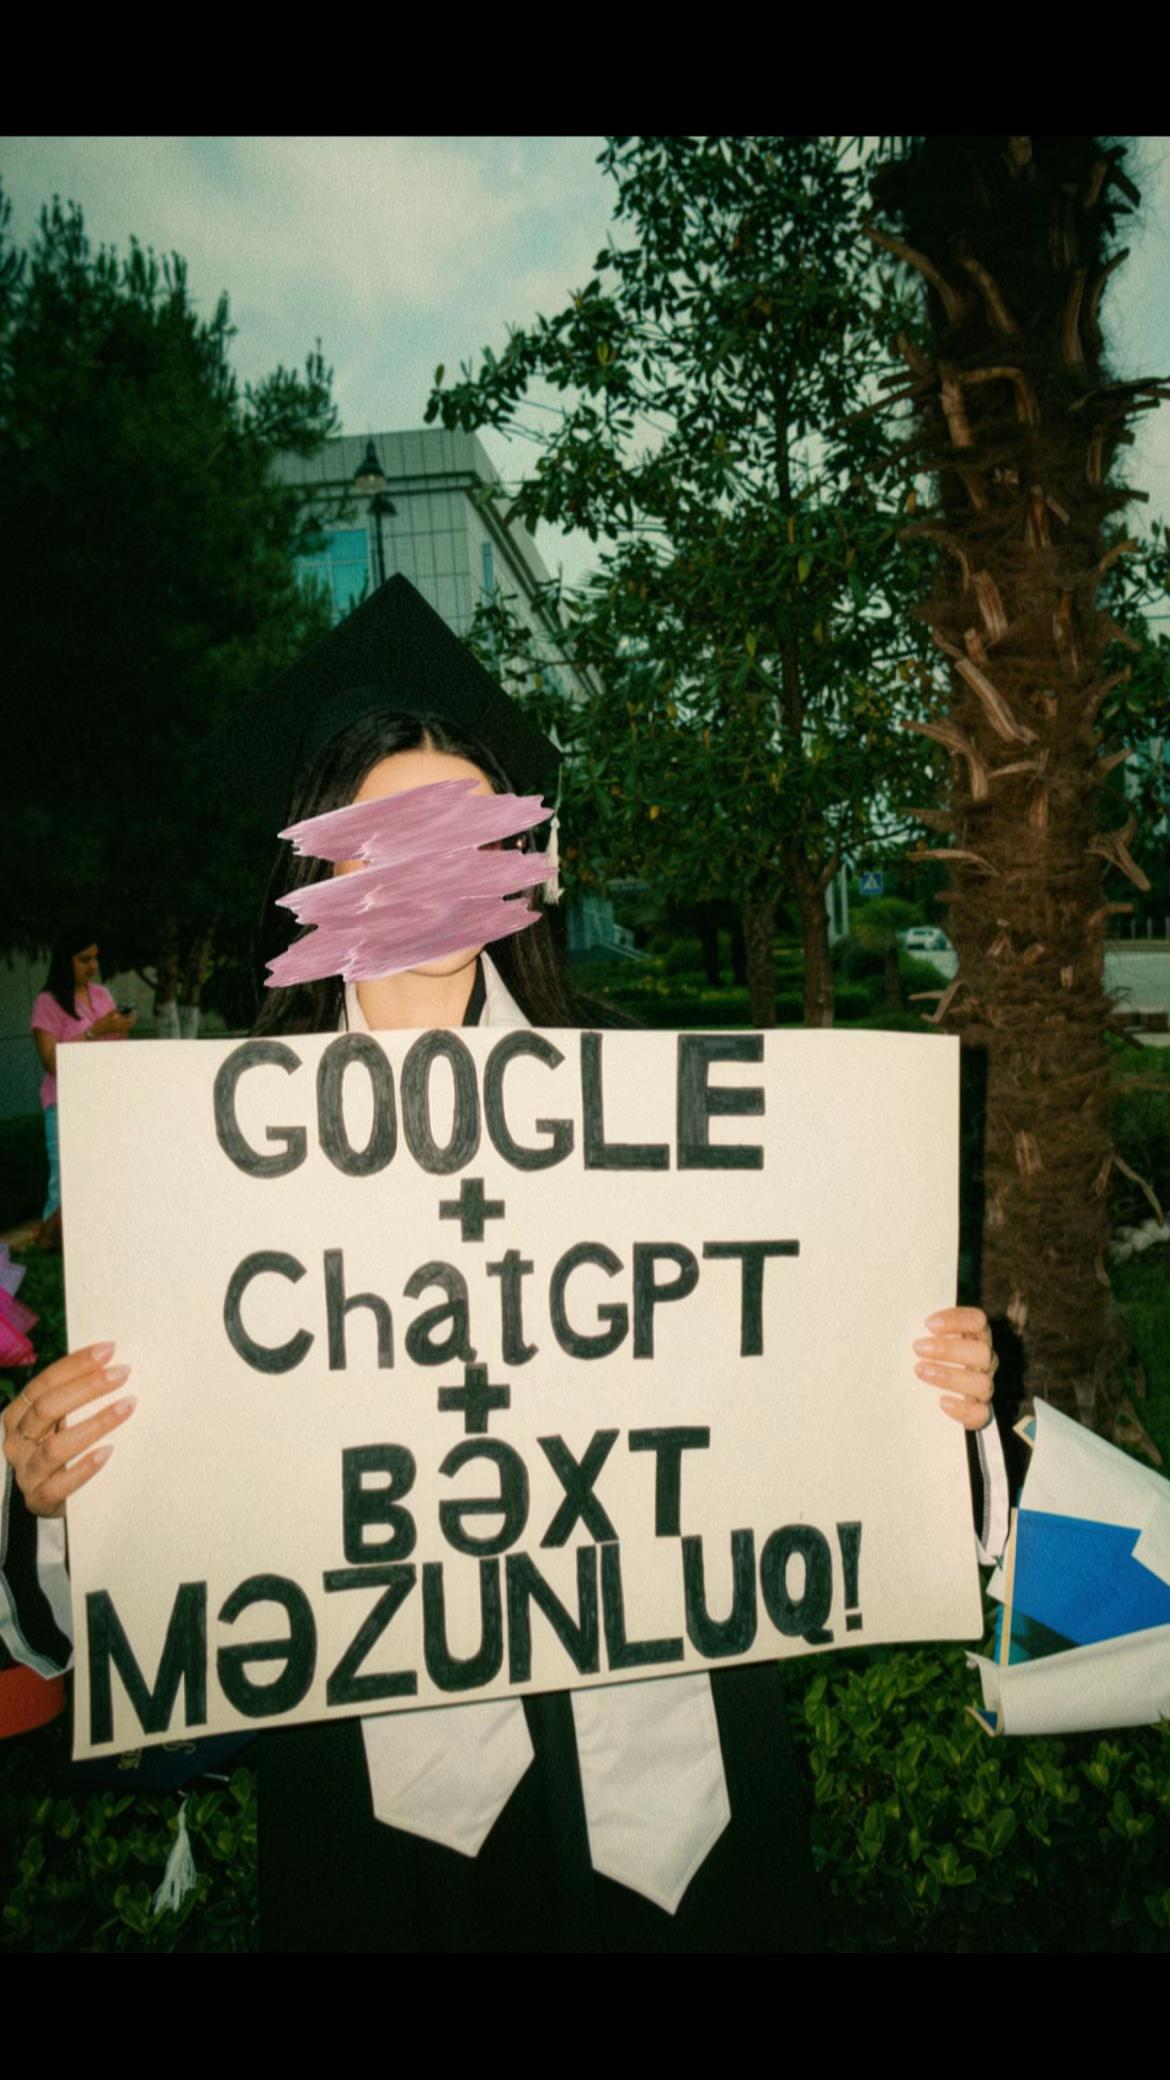 GOOGLE
+
ChatGPT
+
BƏXT
MƏZUNLUQ!